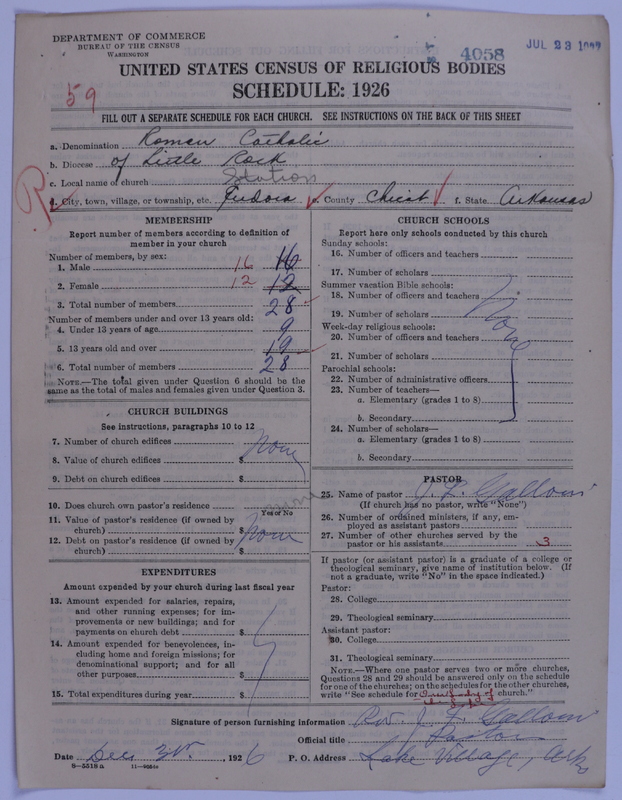 DEPARTMENT OF COMMERCE
BUREAU OF THE CENSUS
WASHINGTON
4058
JUL 23
UNITED STATES CENSUS OF RELIGIOUS BODIES
SCHEDULE: 1926
59
FILL OUT A SEPARATE SCHEDULE FOR EACH CHURCH. SEE INSTRUCTIONS ON THE BACK OF THIS SHEET
a. Denomination Roman Catholic
b. Diocese of Little Rock
c. Local name of church Station
R
d. City, town, village, or township, etc. Eudora e. County Chicot f. State Arkansas
MEMBERSHIP
Report number of members according to definition of
member in your church
Number of members, by sex:
1. Male 16 16
2. Female 12 12
3. Total number of members 28
Number of members under and over 13 years old:
4. Under 13 years of age 9
5. 13 years old and over 19
6. Total number of members 28
NOTE.—The total given under Question 6 should be the
same as the total of males and females given under Question 3.
CHURCH BUILDINGS
See instructions, paragraphs 10 to 12
7. Number of church edifices
8. Value of church edifices $ None
9. Debt on church edifices $
10. Does church own pastor's residence none
Yes or No
11. Value of pastor's residence (if owned by
church) $ None
12. Debt on pastor's residence (if owned by
church) $
EXPENDITURES
Amount expended by your church during last fiscal year
13. Amount expended for salaries, repairs,
and other running expenses; for im-
provements or new buildings; and for
payments on church debt $
14. Amount expended for benevolences, in-
cluding home and foreign missions; for
denominational support; and for all
other purposes $
15. Total expenditures during year $
CHURCH SCHOOLS
Report here only schools conducted by this church
Sunday schools:
16. Number of officers and teachers
17. Number of scholars
Summer vacation Bible schools:
18. Number of officers and teachers
19. Number of scholars None
Week-day religious schools:
20. Number of officers and teachers
21. Number of scholars
Parochial schools:
22. Number of administrative officers
23. Number of teachers—
a. Elementary (grades 1 to 8)
b. Secondary
24. Number of scholars—
a. Elementary (grades 1 to 8)
b. Secondary
PASTOR
25. Name of pastor J. F. Galloni
(If church has no pastor, write "None")
26. Number of ordained ministers, if any, em-
ployed as assistant pastors
27. Number of other churches served by the
pastor or his assistants 3
If pastor (or assistant pastor) is a graduate of a college or
theological seminary, give name of institution below. (If
not a graduate, write "No" in the space indicated.)
Pastor:
28. College
29. Theological seminary
Assistant pastor:
30. College
31. Theological seminary
NOTE.—Where one pastor serves two or more churches,
Questions 28 and 29 should be answered only on the schedule
for one of the churches; on the schedules for the other churches,
write "See schedule for Our Lady of the Lake church."
Signature of person furnishing information Rev. J. F. Galloni
Official title Pastor
Date Dec 31st, 1926 P. O. Address Lake Village, Ark
8—5518a 11—9864a